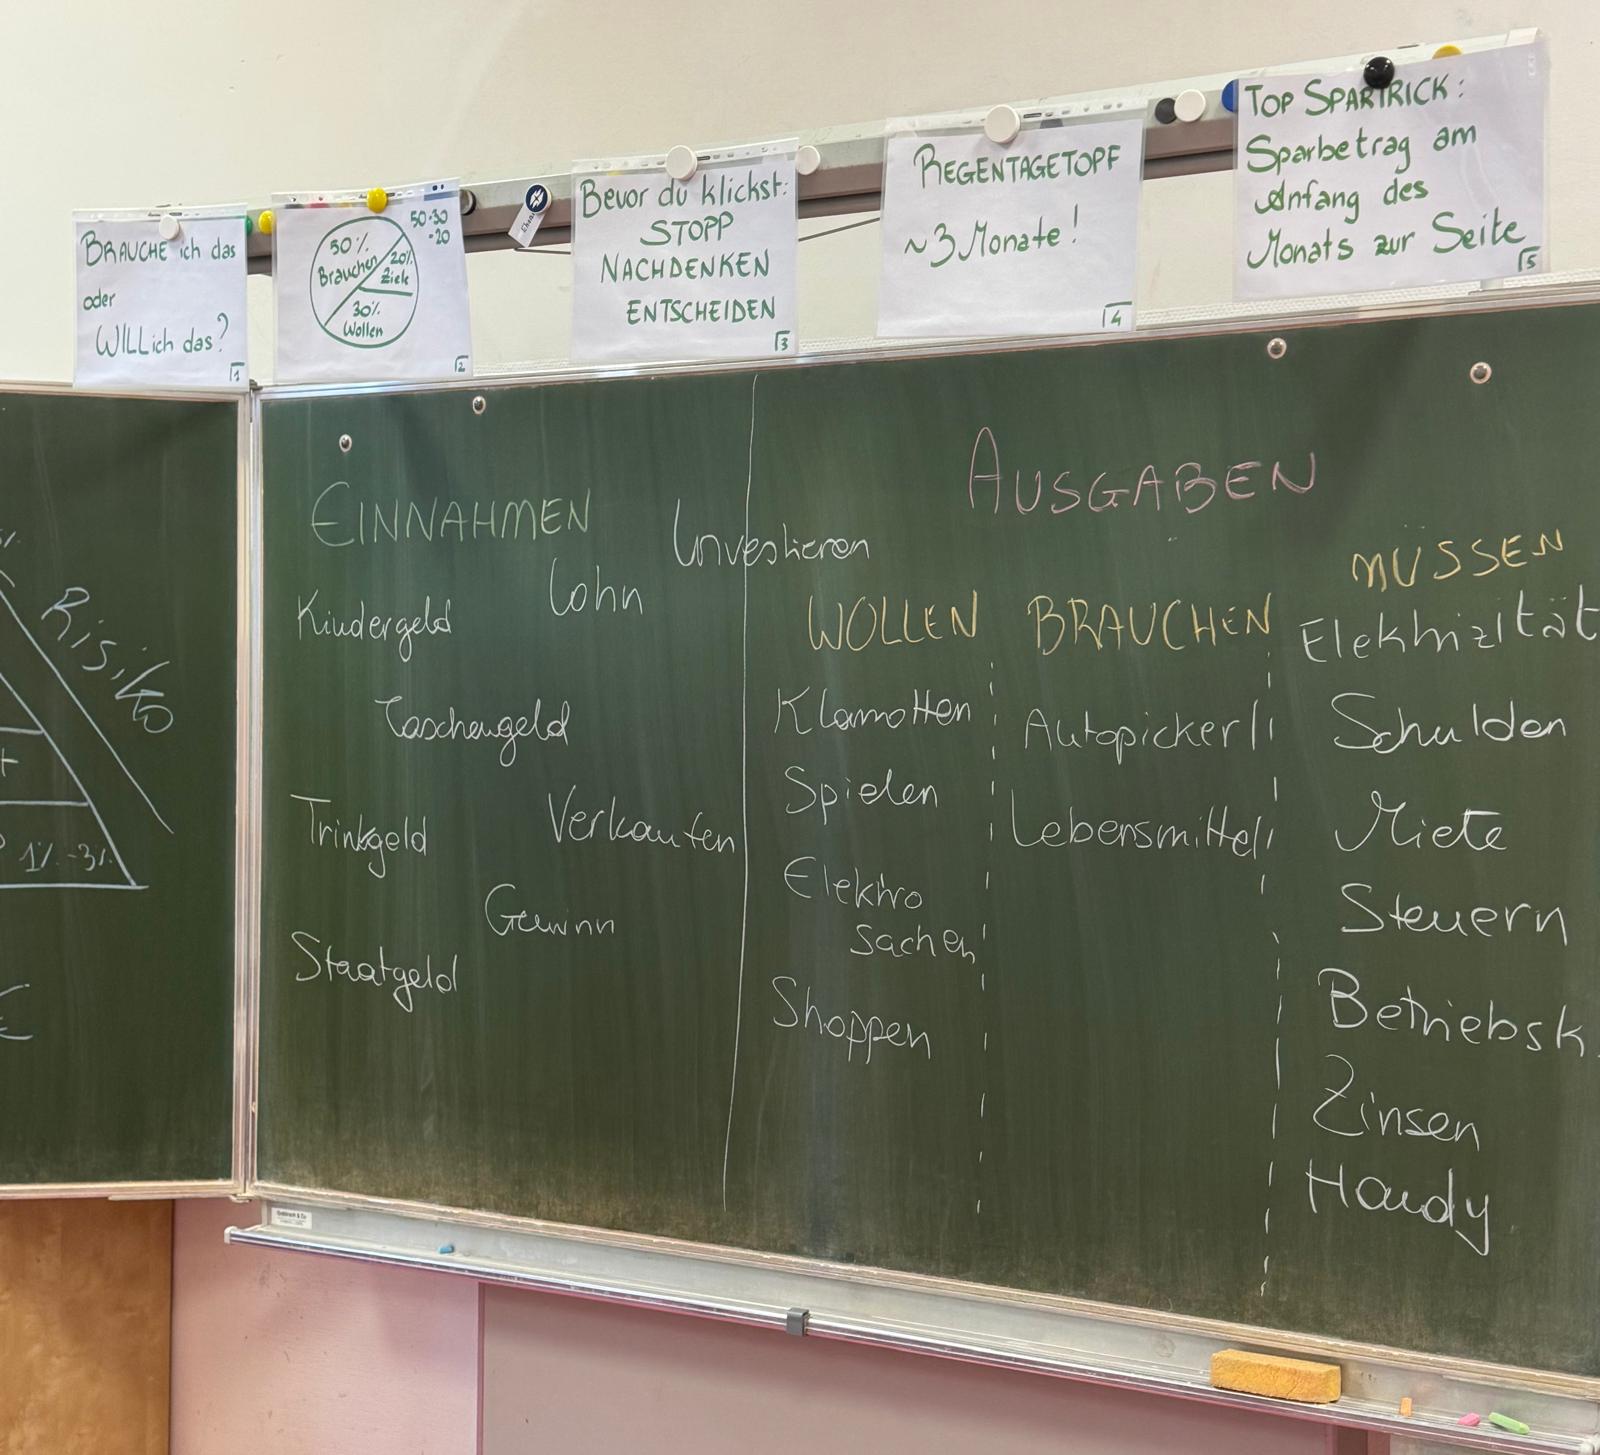 BRAUCHE ich das
oder
WILL ich das?
1
50·30
·20
50%
Brauchen
20%
Ziele
30%
Wollen
2
Bevor du klickst:
STOPP
NACHDENKEN
ENTSCHEIDEN
3
REGENTAGETOPF
~3 Monate!
4
TOP SPARTRICK:
Sparbetrag am
Anfang des
Monats zur Seite
5
Risiko
1%-3%
€
EINNAHMEN
Investieren
Lohn
Kindergeld
Taschengeld
Trinkgeld
Verkaufen
Gewinn
Staatgeld
AUSGABEN
WOLLEN
Klamotten
Spielen
Elektro
Sachen
Shoppen
BRAUCHEN
Autopickerl
Lebensmittel
MÜSSEN
Elektrizität
Schulden
Miete
Steuern
Betriebsk.
Zinsen
Handy